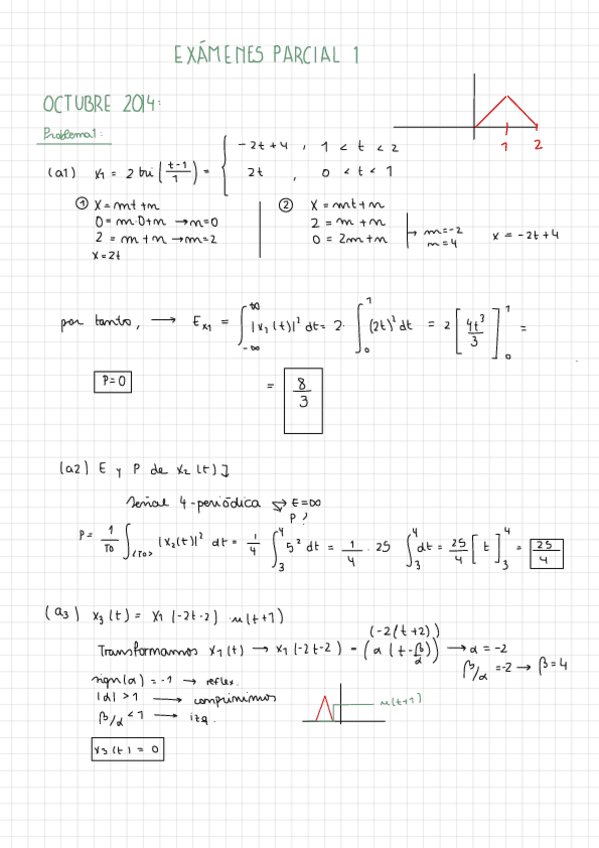 EXÁMENES PARCIAL 1
OCTUBRE 2014:
Problema 1:
(a1) x₁ = 2 tri(t-1/1) = { -2t+4 , 1 < t < 2
2t , 0 < t < 1
1 2
① x = mt+n
0 = m·0+n → n=0
2 = m+n → m=2
x=2t
② x = mt+n
2 = m+n
0 = 2m+n
→ m=-2
n=4
x = -2t+4
por tanto, → E_{x1} = ∫_{-∞}^{∞} |x₁(t)|² dt = 2· ∫_0^1 (2t)² dt = 2 [4t³/3]_0^1 =
P=0
= 8/3
(a2) E y P de x₂(t)]
Señal 4-periódica → E=∞
P?
P = 1/T0 ∫_{(T0)} |x₂(t)|² dt = 1/4 ∫_3^4 5² dt = 1/4 · 25 ∫_3^4 dt = 25/4 [t]_3^4 = 25/4
(a3) x₃(t) = x₁(-2t-2) · u(t+1)
(-2(t+2))
Transformamos x₁(t) → x₁(-2t-2) = (α(t-β/α)) → α = -2
β/α = -2 → β=4
sign(α) = -1 → reflex.
|α| > 1 → comprimimos
β/α < 1 → izq.
u(t+1)
x₃(t) = 0